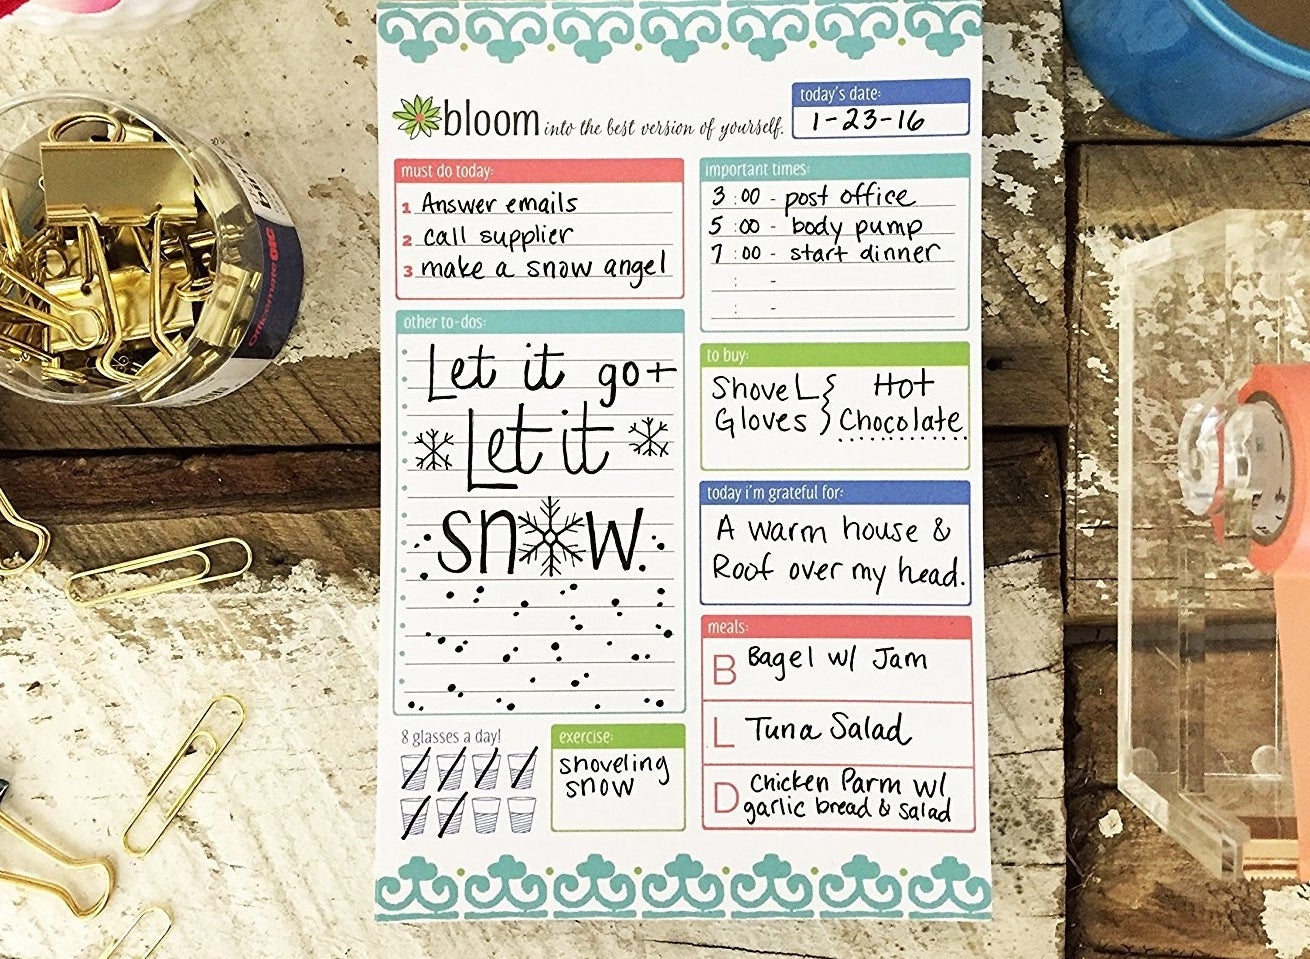 bloom into the best version of yourself.
today's date:
1-23-16
must do today:
1 Answer emails
2 call supplier
3 make a snow angel
important times:
3:00 - post office
5:00 - body pump
7:00 - start dinner
: -
: -
other to-dos:
Let it go +
Let it
snow.
to buy:
Shovel } Hot
Gloves } Chocolate
today i'm grateful for:
A warm house &
Roof over my head.
meals:
B Bagel w/ Jam
L Tuna Salad
D Chicken Parm w/
garlic bread & salad
8 glasses a day!
exercise:
shoveling
snow
Officemate OIC